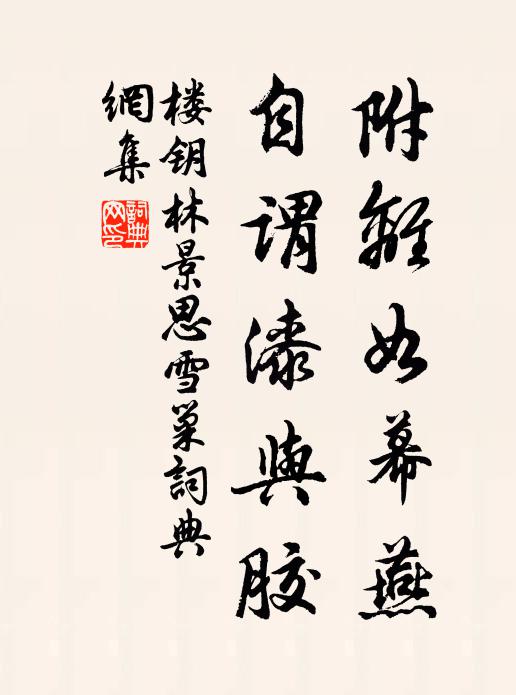 附離如幕燕
自谓漆與胶
楼钥林景思雪巢詞典
網集
詞典
网印